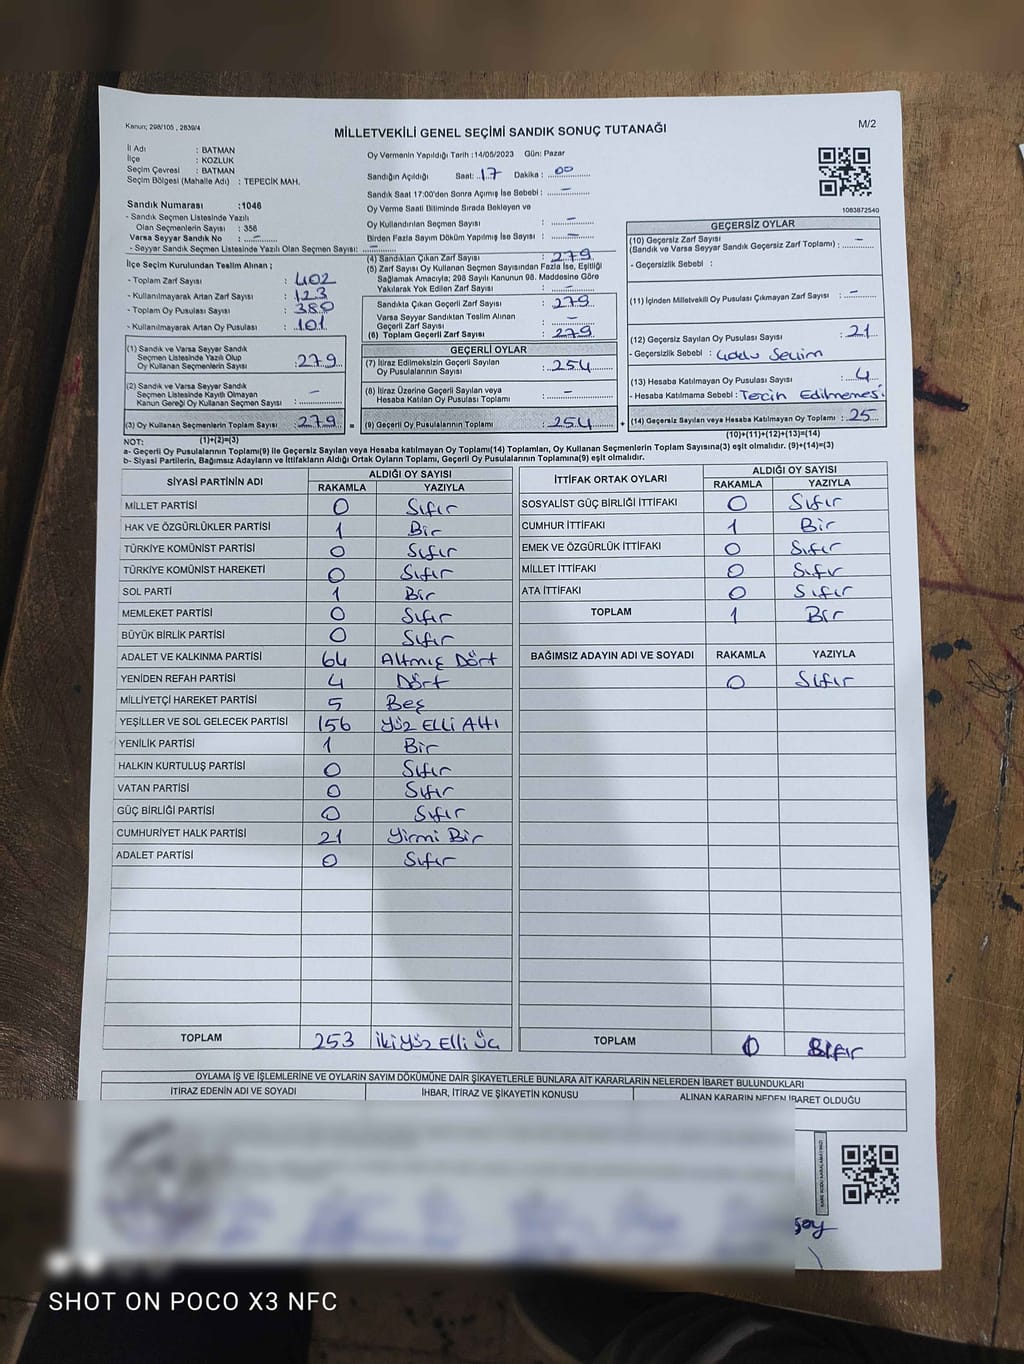 Kanun; 298/105 , 2839/4
MİLLETVEKİLİ GENEL SEÇİMİ SANDIK SONUÇ TUTANAĞI
M/2
İl Adı : BATMAN
İlçe : KOZLUK
Seçim Çevresi : BATMAN
Seçim Bölgesi (Mahalle Adı) : TEPECİK MAH.
Sandık Numarası :1046
- Sandık Seçmen Listesinde Yazılı
Olan Seçmenlerin Sayısı : 356
Varsa Seyyar Sandık No : –
- Seyyar Sandık Seçmen Listesinde Yazılı Olan Seçmen Sayısı: –
İlçe Seçim Kurulundan Teslim Alınan ;
- Toplam Zarf Sayısı : 402
- Kullanılmayarak Artan Zarf Sayısı : 123
- Toplam Oy Pusulası Sayısı : 380
- Kullanılmayarak Artan Oy Pusulası : 101
(1) Sandık ve Varsa Seyyar Sandık
Seçmen Listesinde Yazılı Olup
Oy Kullanan Seçmenlerin Sayısı : 279
(2) Sandık ve Varsa Seyyar Sandık
Seçmen Listesinde Kayıtlı Olmayan
Kanun Gereği Oy Kullanan Seçmen Sayısı : –
(3) Oy Kullanan Seçmenlerin Toplam Sayısı : 279
(1)+(2)=(3)
Oy Vermenin Yapıldığı Tarih :14/05/2023 Gün: Pazar
Sandığın Açıldığı Saat: 17 Dakika : 00
Sandık Saat 17:00'den Sonra Açımış İse Sebebi : –
Oy Verme Saati Bitiminde Sırada Bekleyen ve
Oy Kullandırılan Seçmen Sayısı : –
Birden Fazla Sayım Döküm Yapılmış İse Sayısı : –
(4) Sandıktan Çıkan Zarf Sayısı : 279
(5) Zarf Sayısı Oy Kullanan Seçmen Sayısından Fazla İse, Eşitliği
Sağlamak Amacıyla; 298 Sayılı Kanunun 98. Maddesine Göre
Yakılarak Yok Edilen Zarf Sayısı : –
Sandıkta Çıkan Geçerli Zarf Sayısı : 279
Varsa Seyyar Sandıktan Teslim Alınan
Geçerli Zarf Sayısı : –
(6) Toplam Geçerli Zarf Sayısı : 279
GEÇERLİ OYLAR
(7) İtiraz Edilmeksizin Geçerli Sayılan
Oy Pusulalarının Sayısı : 254
(8) İtiraz Üzerine Geçerli Sayılan veya
Hesaba Katılan Oy Pusulası Toplamı : –
= (9) Geçerli Oy Pusulalarının Toplamı : 254 +
1083872540
GEÇERSİZ OYLAR
(10) Geçersiz Zarf Sayısı
(Sandık ve Varsa Seyyar Sandık Geçersiz Zarf Toplamı) : –
- Geçersizlik Sebebi :
(11) İçinden Milletvekili Oy Pusulası Çıkmayan Zarf Sayısı : –
(12) Geçersiz Sayılan Oy Pusulası Sayısı : 21
- Geçersizlik Sebebi :
(13) Hesaba Katılmayan Oy Pusulası Sayısı : 4
- Hesaba Katılmama Sebebi : Tercih Edilmemesi
(14) Geçersiz Sayılan veya Hesaba Katılmayan Oy Toplamı : 25
(10)+(11)+(12)+(13)=(14)
NOT:
a- Geçerli Oy Pusulalarının Toplamı(9) ile Geçersiz Sayılan veya Hesaba katılmayan Oy Toplamı(14) Toplamları, Oy Kullanan Seçmenlerin Toplam Sayısına(3) eşit olmalıdır. (9)+(14)=(3)
b- Siyasi Partilerin, Bağımsız Adayların ve İttifakların Aldığı Ortak Oyların Toplamı, Geçerli Oy Pusulalarının Toplamına(9) eşit olmalıdır.
SİYASİ PARTİNİN ADI ALDIĞI OY SAYISI
RAKAMLA YAZIYLA
MİLLET PARTİSİ 0 Sıfır
HAK VE ÖZGÜRLÜKLER PARTİSİ 1 Bir
TÜRKİYE KOMÜNİST PARTİSİ 0 Sıfır
TÜRKİYE KOMÜNİST HAREKETİ 0 Sıfır
SOL PARTİ 1 Bir
MEMLEKET PARTİSİ 0 Sıfır
BÜYÜK BİRLİK PARTİSİ 0 Sıfır
ADALET VE KALKINMA PARTİSİ 64 Altmış Dört
YENİDEN REFAH PARTİSİ 4 Dört
MİLLİYETÇİ HAREKET PARTİSİ 5 Beş
YEŞİLLER VE SOL GELECEK PARTİSİ 156 Yüz Elli Altı
YENİLİK PARTİSİ 1 Bir
HALKIN KURTULUŞ PARTİSİ 0 Sıfır
VATAN PARTİSİ 0 Sıfır
GÜÇ BİRLİĞİ PARTİSİ 0 Sıfır
CUMHURİYET HALK PARTİSİ 21 Yirmi Bir
ADALET PARTİSİ 0 Sıfır
TOPLAM 253 İkiYüz Elli Üç
İTTİFAK ORTAK OYLARI ALDIĞI OY SAYISI
RAKAMLA YAZIYLA
SOSYALİST GÜÇ BİRLİĞİ İTTİFAKI 0 Sıfır
CUMHUR İTTİFAKI 1 Bir
EMEK VE ÖZGÜRLÜK İTTİFAKI 0 Sıfır
MİLLET İTTİFAKI 0 Sıfır
ATA İTTİFAKI 0 Sıfır
TOPLAM 1 Bir
BAĞIMSIZ ADAYIN ADI VE SOYADI RAKAMLA YAZIYLA
0 Sıfır
TOPLAM 0 Sıfır
OYLAMA İŞ VE İŞLEMLERİNE VE OYLARIN SAYIM DÖKÜMÜNE DAİR ŞİKAYETLERLE BUNLARA AİT KARARLARIN NELERDEN İBARET BULUNDUKLARI
İTİRAZ EDENİN ADI VE SOYADI İHBAR, İTİRAZ VE ŞİKAYETİN KONUSU ALINAN KARARIN NEDEN İBARET OLDUĞU
SHOT ON POCO X3 NFC